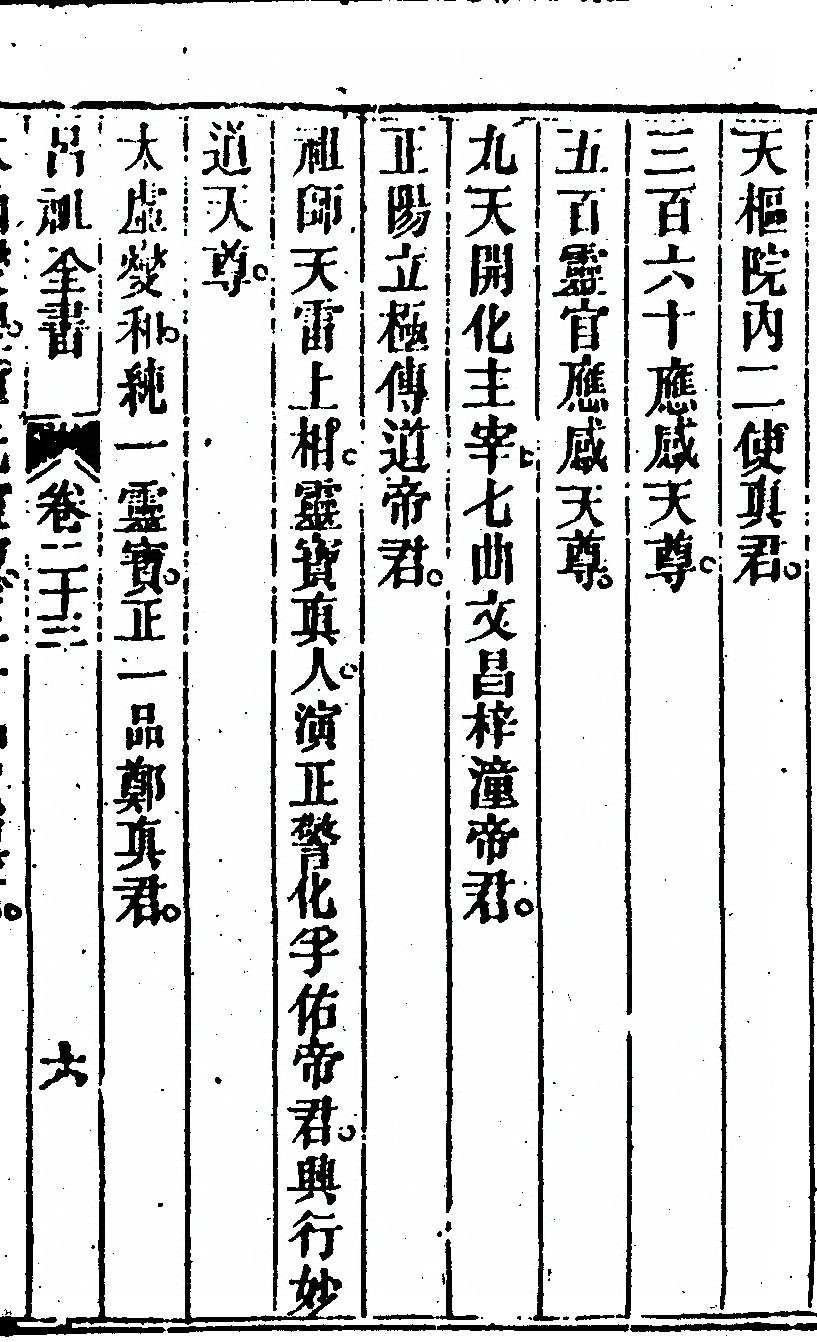 天樞院內二使真君。
三百六十應感天尊。
五百靈官應感天尊。
九天開化主宰七曲文昌梓潼帝君。
正陽立極傳道帝君。
祖師天雷上相。靈寶真人。演正警化孚佑帝君。興行妙
道天尊。
太虛燮和。純一靈寶。正一品鄭真君。
呂祖全書 卷二十三 六